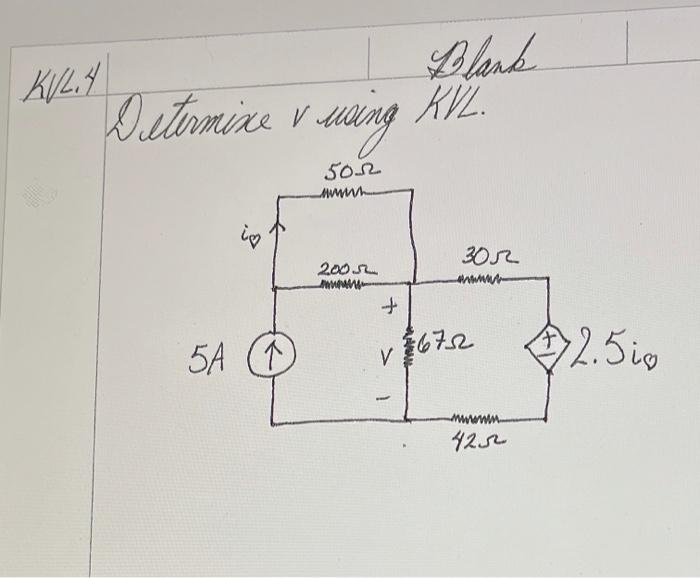 KVL.4
Blank
Determine v using KVL.
50Ω
iø
200Ω
30Ω
+
5A
v
67Ω
+
-
2.5iø
-
42Ω